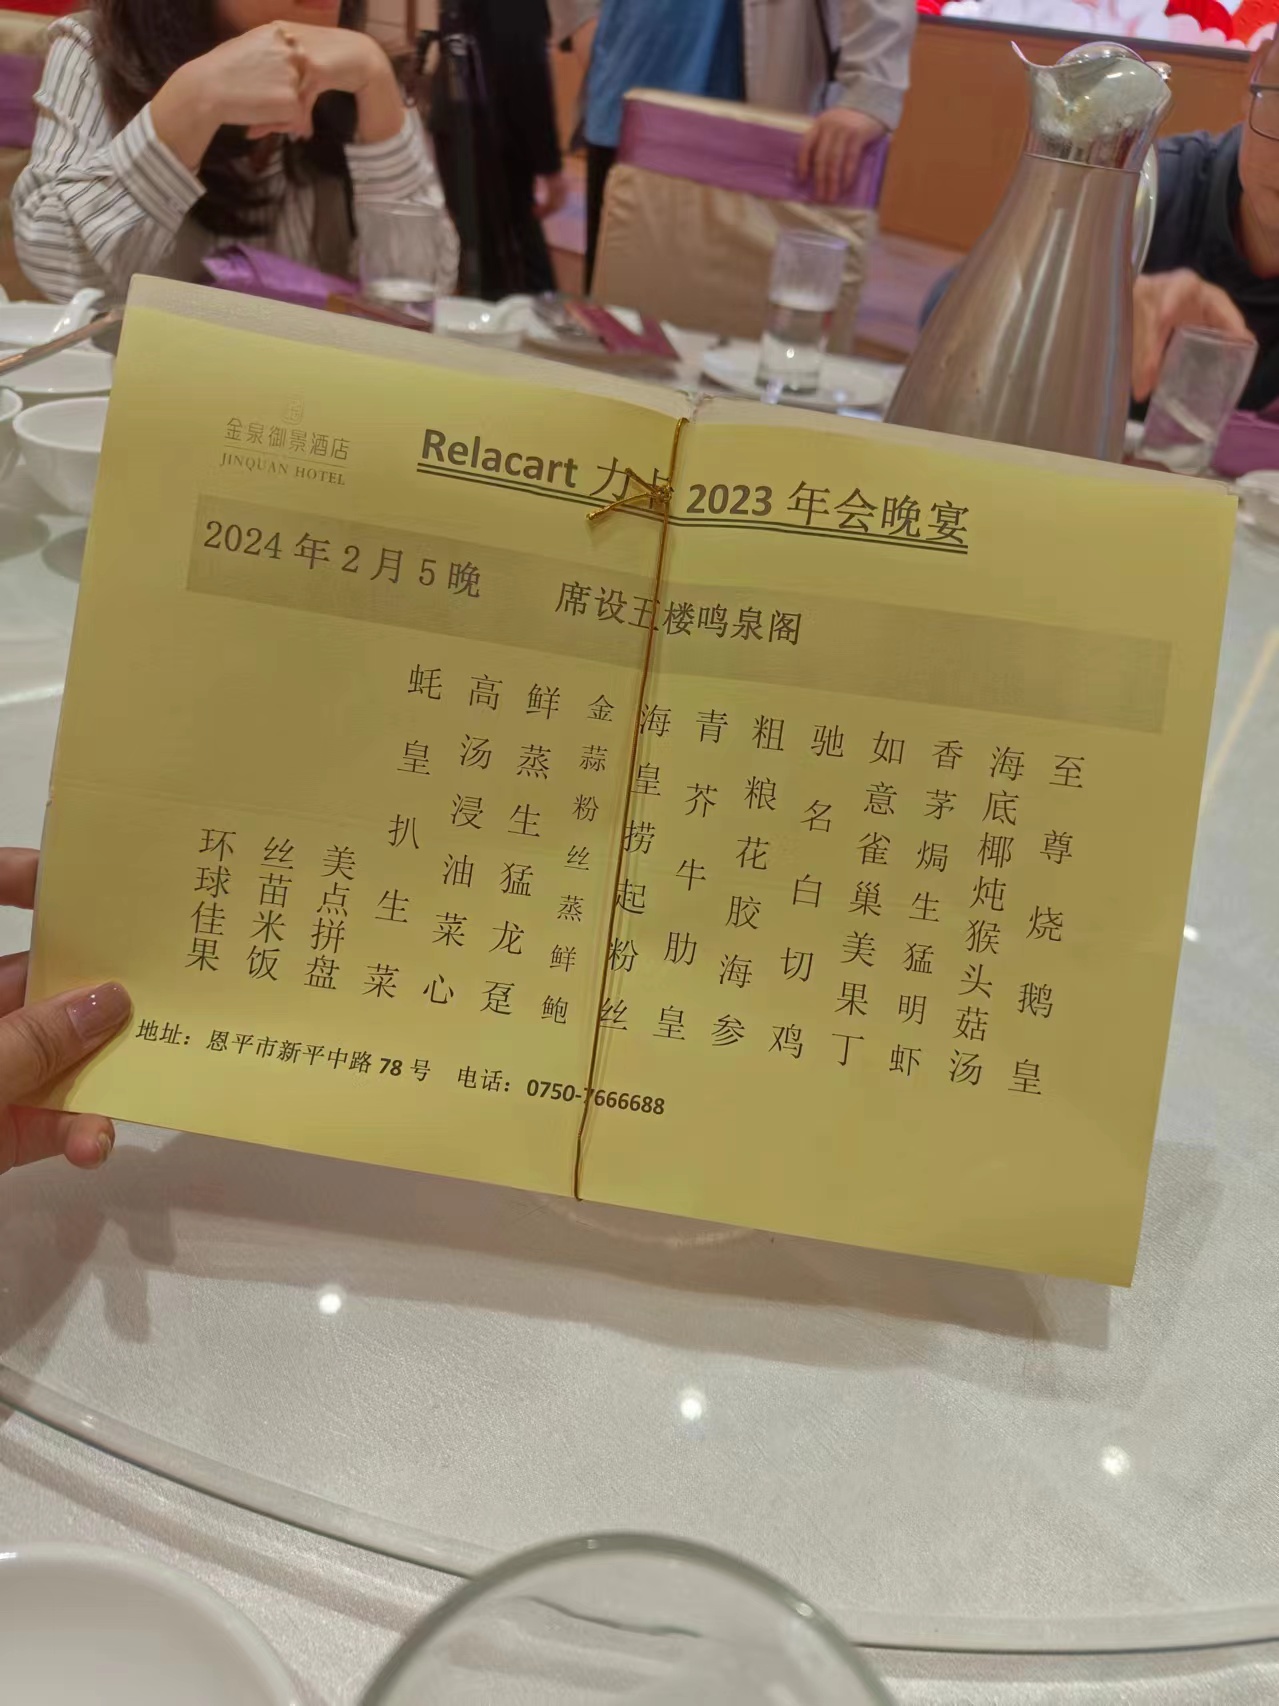 金泉御景酒店
JINQUAN HOTEL
Relacart 力卡 2023 年会晚宴
2024 年 2 月 5 晚 席设五楼鸣泉阁
至尊烧鹅皇
海底椰炖猴头菇汤
香茅焗生猛明虾
如意雀巢美果丁
驰名白切鸡
粗粮花胶海参
青芥牛肋皇
海皇捞起粉丝
金蒜粉丝蒸鲜鲍
鲜蒸生猛龙趸
高汤浸油菜心
蚝皇扒生菜
美点拼盘
丝苗米饭
环球佳果
地址：恩平市新平中路 78 号 电话：0750-7666688